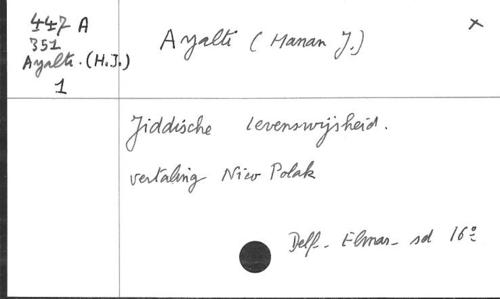 447 A
351
Ayalti. (H.J.)
1
Ayalti (Hanan J.)
x
Jiddische levenswijsheid.
vertaling Nico Polak
Delf_ Elmar_ sd 16°